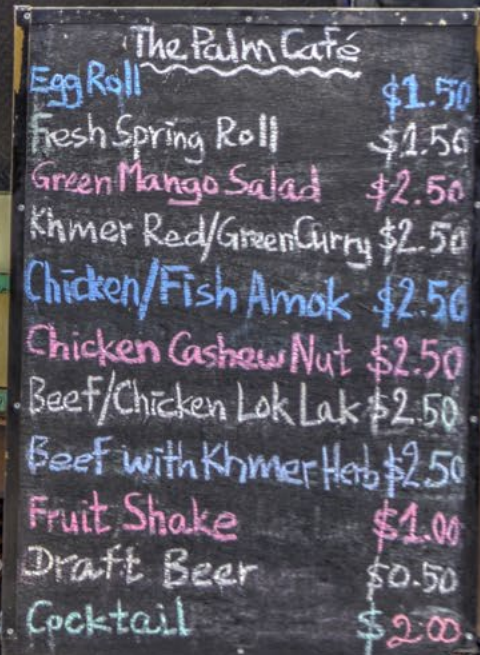 The Palm Café
Egg Roll $1.50
Fresh Spring Roll $1.50
Green Mango Salad $2.50
Khmer Red/Green Curry $2.50
Chicken/Fish Amok $2.50
Chicken Cashew Nut $2.50
Beef/Chicken Lok Lak $2.50
Beef with Khmer Herb $2.50
Fruit Shake $1.00
Draft Beer $0.50
Cocktail $2.00